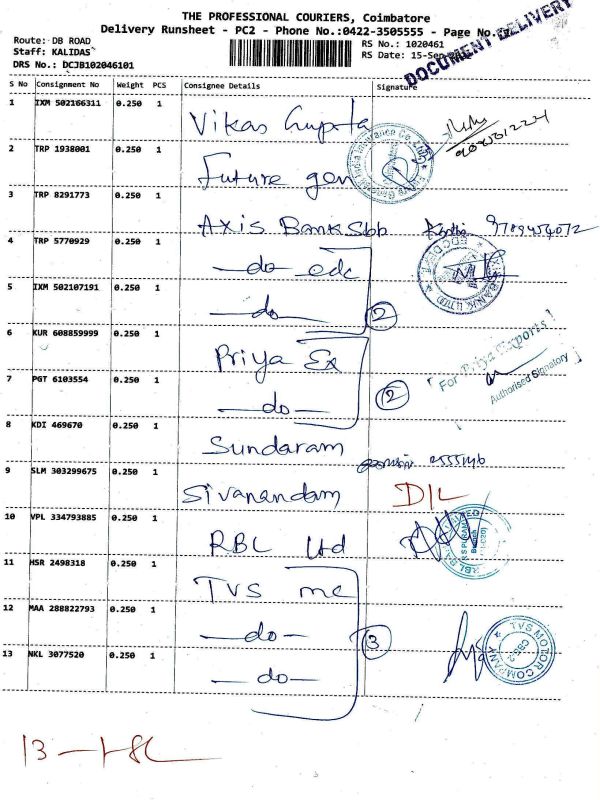 THE PROFESSIONAL COURIERS, Coimbatore
Delivery Runsheet - PC2 - Phone No.:0422-3505555 - Page No.
DOCUMENT DELIVERY
Route: DB ROAD
Staff: KALIDAS
DRS No.: DCJB102046101
RS No.: 1020461
RS Date: 15-Sep
S No Consignment No Weight PCS Consignee Details Signature
1 IXM 502166311 0.250 1 Vikas Gupta
2 TRP 1938001 0.250 1 Future gen
3 TRP 8291773 0.250 1 Axis Bank Sbb 9789454072
4 TRP 5770929 0.250 1 —do— edc
5 IXM 502107191 0.250 1 —do— 2
6 KUR 608859999 0.250 1 Priya Ex
For Priya Exports!
Authorised Signatory
7 PGT 6103554 0.250 1 —do— 2
8 KDI 469670 0.250 1 Sundaram
9 SLM 303299675 0.250 1 Sivanandam D/L
10 VPL 334793885 0.250 1 RBL Ltd
11 HSR 2498318 0.250 1 TVS mc
12 MAA 288822793 0.250 1 —do— 3
TVS MOTOR COMPANY
CBE-2
13 NKL 3077520 0.250 1 —do—